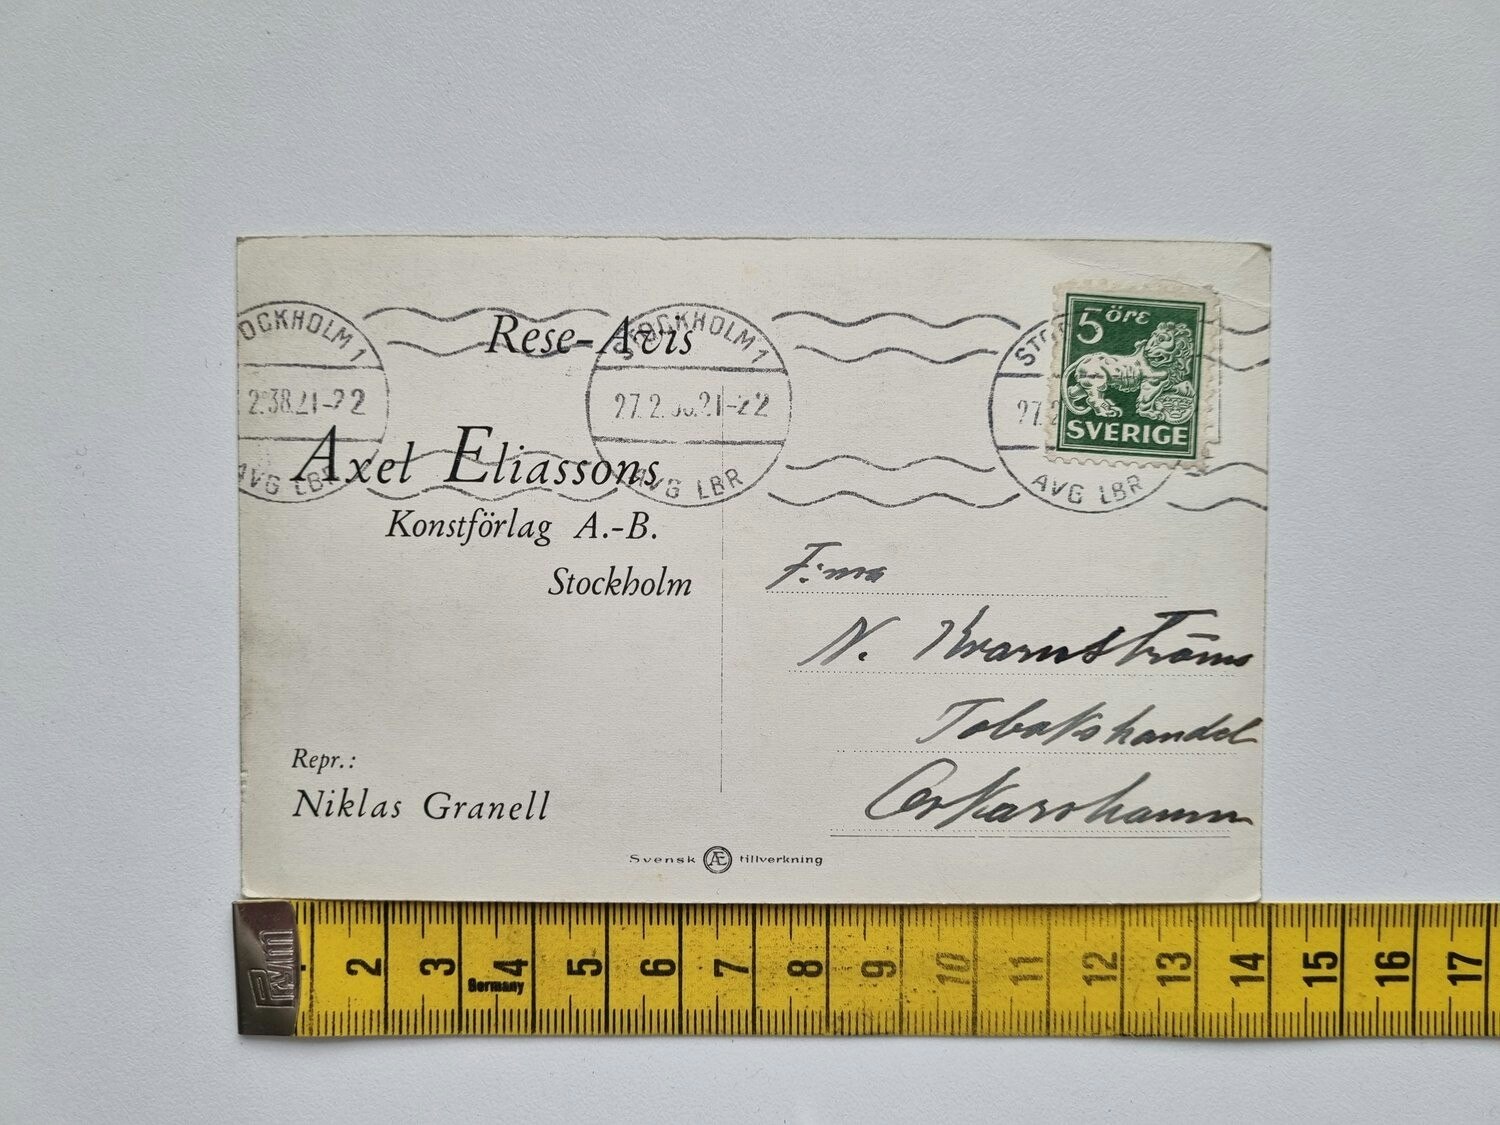 STOCKHOLM 1
27.2.38.21-22
AVG LBR
OCKHOLM 1
2.38.21-22
AVG LBR
5 öre
SVERIGE
Rese-Avis
Axel Eliassons
Konstförlag A.-B.
Stockholm
Repr.:
Niklas Granell
Svensk Æ tillverkning
F:ma
N. Kvarnströms
Tobakshandel
Oskarshamn
PWM
Germany
2 3 4 5 6 7 8 9 10 11 12 13 14 15 16 17